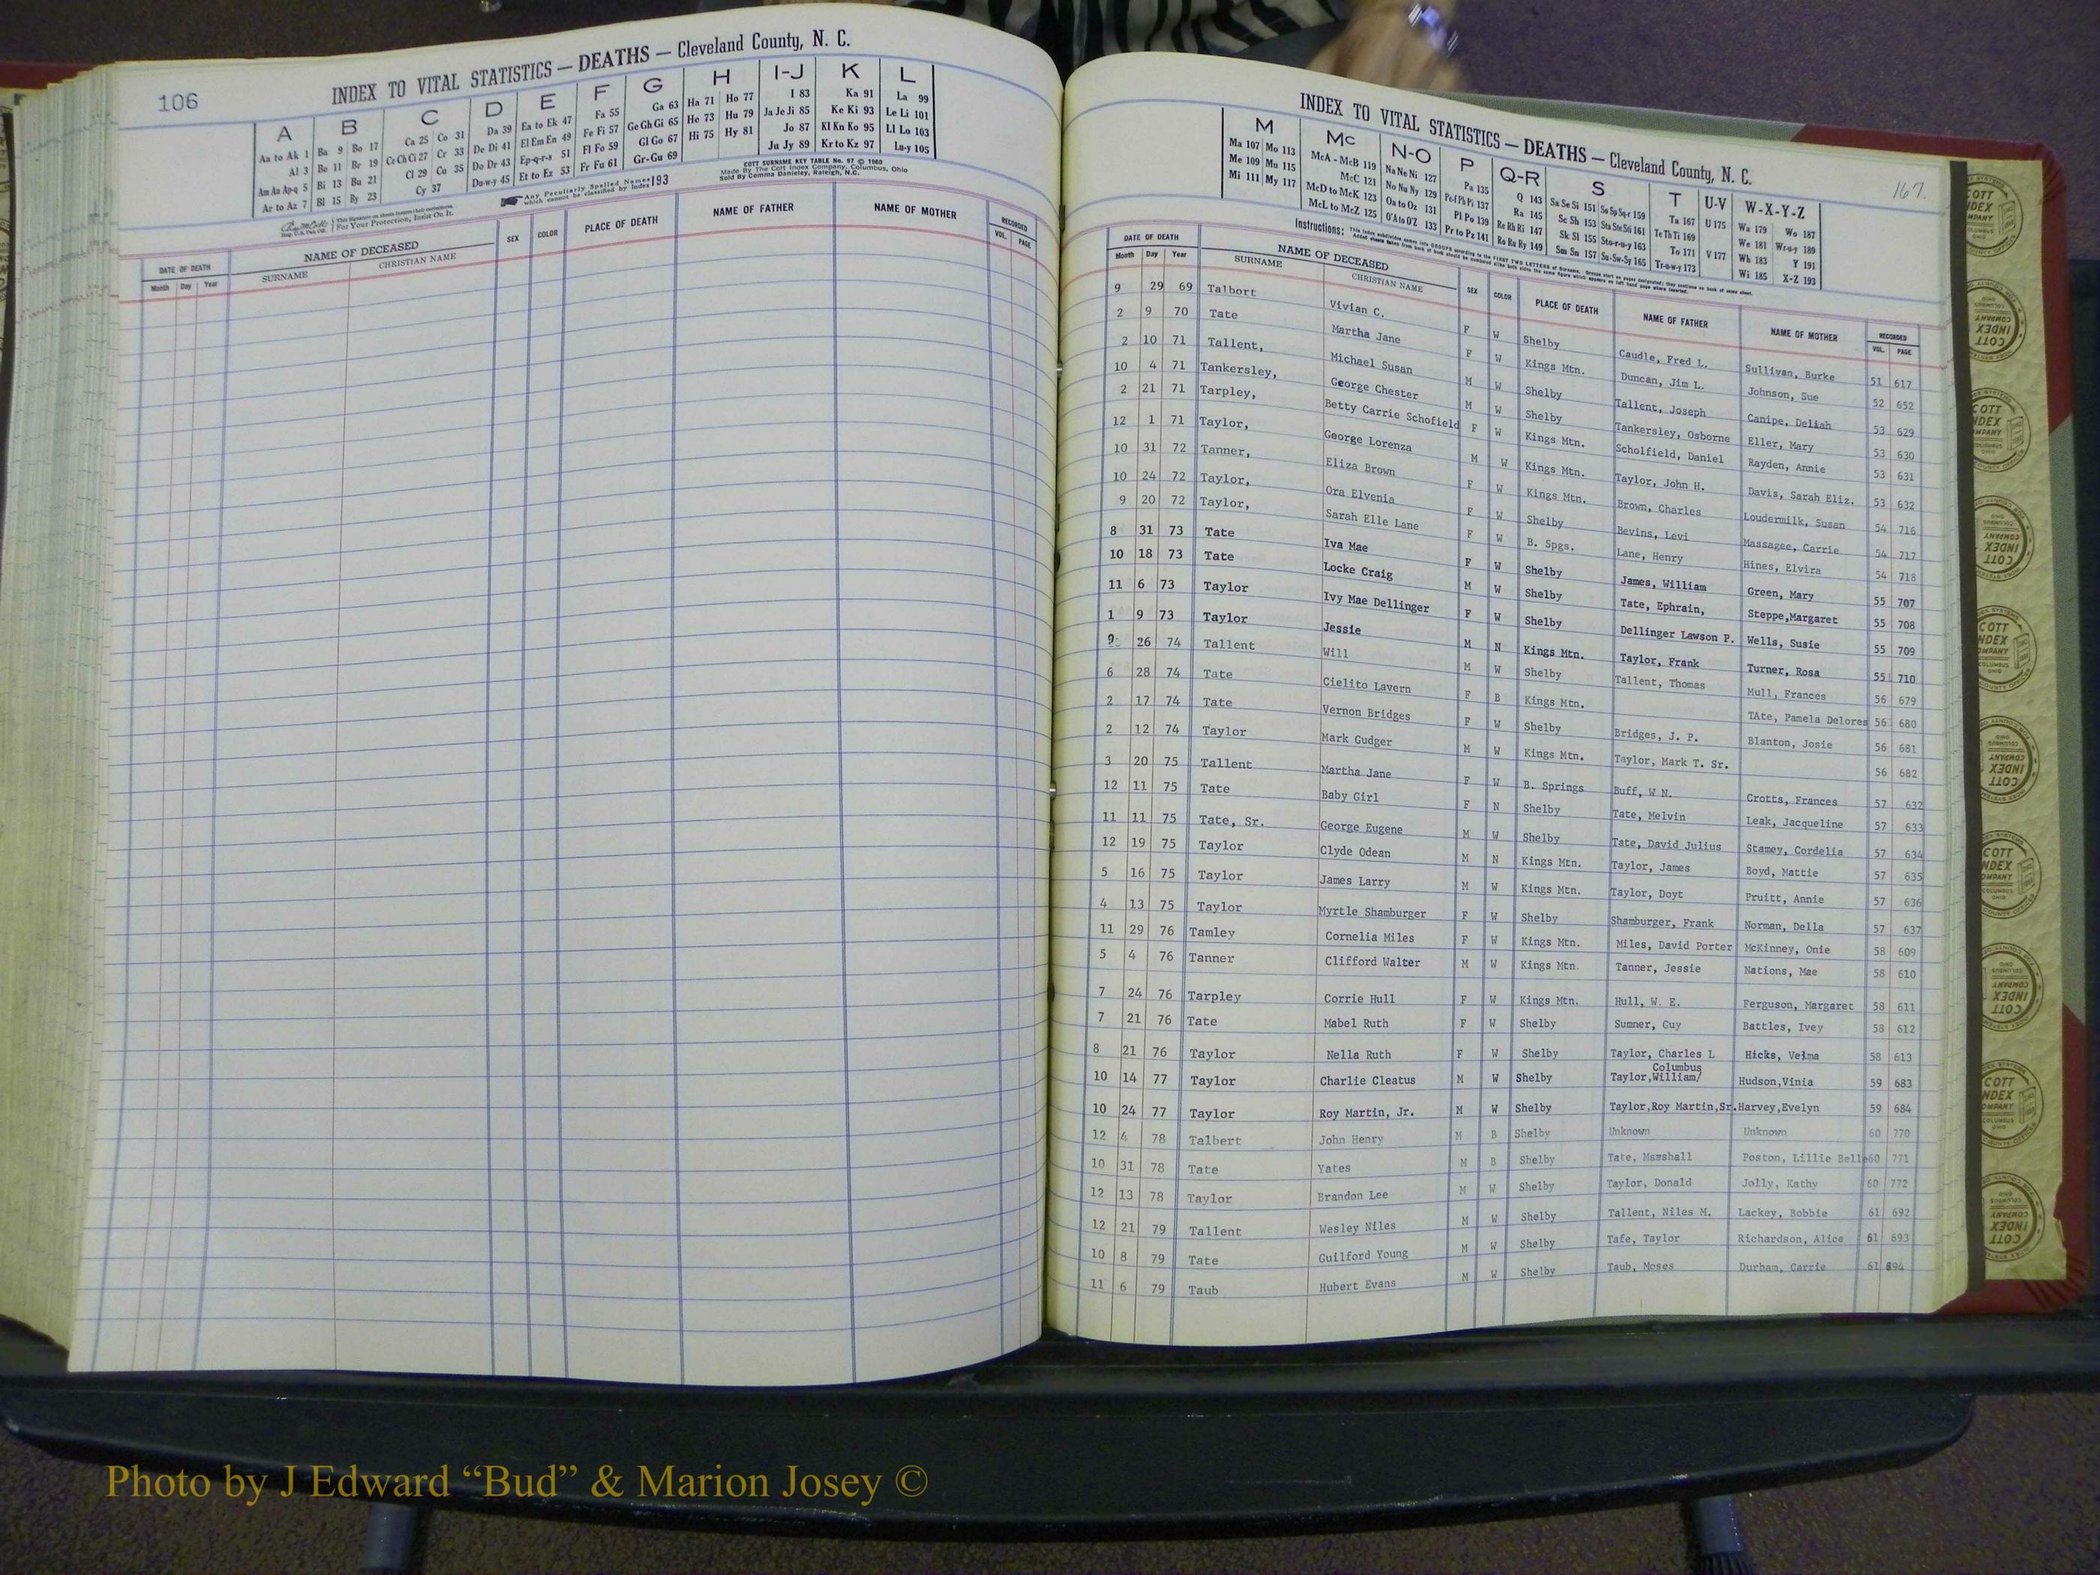 106
INDEX TO VITAL STATISTICS — DEATHS — Cleveland County, N. C.
A B C D E F G H I-J K L
Aa to Ak 1 Ba 9 Bo 17 Ca 25 Co 31 Da 39 Ea to Ek 47 Fa 55 Ga 63 Ha 71 Ho 77 I 83 Ka 91 La 99
Al 3 Be 11 Br 19 Ce Ch Ci 27 Cr 33 De Di 41 El Em En 49 Fe Fi 57 Ge Gh Gi 65 He 73 Hu 79 Ja Je Ji 85 Ke Ki 93 Le Li 101
Am An Ap-q 5 Bi 13 Bu 21 Cl 29 Cu 35 Do Dr 43 Ep-q-r-s 51 Fl Fo 59 Gl Go 67 Hi 75 Hy 81 Jo 87 Kl Kn Ko 95 Ll Lo 103
Ar to Az 7 Bl 15 By 23 Cy 37 Du-w-y 45 Et to Ez 53 Fr Fu 61 Gr-Gu 69 Ju Jy 89 Kr to Kz 97 Lu-y 105
This Signature on sheets insures their correctness.
For Your Protection, Insist On It.
Any Peculiarly Spelled Names which cannot be classified by Index 193
COTT SURNAME KEY TABLE No. 97 © 1960
Made By The Cott Index Company, Columbus, Ohio
Sold By Cemma Danieley, Raleigh, N.C.
DATE OF DEATH NAME OF DECEASED SEX COLOR PLACE OF DEATH NAME OF FATHER NAME OF MOTHER RECORDED
Month Day Year SURNAME CHRISTIAN NAME VOL. PAGE
INDEX TO VITAL STATISTICS — DEATHS — Cleveland County, N. C.
167.
M Mc N-O P Q-R S T U-V W-X-Y-Z
Ma 107 Mo 113 McA - McB 119 Na Ne Ni 127 Pa 135 Q 143 Sa Se Si 151 So Sp Sq-r 159 Ta 167 U 175 Wa 179 Wo 187
Me 109 Mu 115 McC 121 No Nu Ny 129 Pe-f Ph Pi 137 Ra 145 Sc Sh 153 Sta Ste Sti 161 Te Th Ti 169 We 181 Wr-u-y 189
Mi 111 My 117 McD to McK 123 Oa to Oz 131 Pl Po 139 Re Rh Ri 147 Sk Sl 155 Sto-r-u-y 163 To 171 V 177 Wh 183 Y 191
McL to McZ 125 O'A to O'Z 133 Pr to Pz 141 Ro Ru Ry 149 Sm Sn 157 Su-Sw-Sy 165 Tr-u-w-y 173 Wi 185 X-Z 193
Instructions:
DATE OF DEATH NAME OF DECEASED SEX COLOR PLACE OF DEATH NAME OF FATHER NAME OF MOTHER RECORDED
Month Day Year SURNAME CHRISTIAN NAME VOL. PAGE
9 29 69 Talbort Vivian C. F W Shelby Caudle, Fred L. Sullivan, Burke 51 617
2 9 70 Tate Martha Jane F W Kings Mtn. Duncan, Jim L. Johnson, Sue 52 652
2 10 71 Tallent, Michael Susan M W Shelby Tallent, Joseph Canipe, Deliah 53 629
10 4 71 Tankersley, George Chester M W Shelby Tankersley, Osborne Eller, Mary 53 630
2 21 71 Tarpley, Betty Carrie Schofield F W Kings Mtn. Scholfield, Daniel Rayden, Annie 53 631
12 1 71 Taylor, George Lorenza M W Kings Mtn. Taylor, John H. Davis, Sarah Eliz. 53 632
10 31 72 Tanner, Eliza Brown F W Kings Mtn. Brown, Charles Loudermilk, Susan 54 716
10 24 72 Taylor, Ora Elvenia F W Shelby Bevins, Levi Massagee, Carrie 54 717
9 20 72 Taylor, Sarah Elle Lane F W B. Spgs. Lane, Henry Hines, Elvira 54 718
8 31 73 Tate Iva Mae F W Shelby James, William Green, Mary 55 707
10 18 73 Tate Locke Craig M W Shelby Tate, Ephrain, Steppe,Margaret 55 708
11 6 73 Taylor Ivy Mae Dellinger F W Shelby Dellinger Lawson P. Wells, Susie 55 709
1 9 73 Taylor Jessie M N Kings Mtn. Taylor, Frank Turner, Rosa 55 710
9 26 74 Tallent Will M W Shelby Tallent, Thomas Mull, Frances 56 679
6 28 74 Tate Cielito Lavern F B Kings Mtn. TAte, Pamela Delores 56 680
2 17 74 Tate Vernon Bridges F W Shelby Bridges, J. P. Blanton, Josie 56 681
2 12 74 Taylor Mark Gudger M W Kings Mtn. Taylor, Mark T. Sr. 56 682
3 20 75 Tallent Martha Jane F W B. Springs Buff, W N. Crotts, Frances 57 632
12 11 75 Tate Baby Girl F N Shelby Tate, Melvin Leak, Jacqueline 57 633
11 11 75 Tate, Sr. George Eugene M W Shelby Tate, David Julius Stamey, Cordelia 57 634
12 19 75 Taylor Clyde Odean M N Kings Mtn. Taylor, James Boyd, Mattie 57 635
5 16 75 Taylor James Larry M W Kings Mtn. Taylor, Doyt Pruitt, Annie 57 636
4 13 75 Taylor Myrtle Shamburger F W Shelby Shamburger, Frank Norman, Della 57 637
11 29 76 Tamley Cornelia Miles F W Kings Mtn. Miles, David Porter McKinney, Onie 58 609
5 4 76 Tanner Clifford Walter M W Kings Mtn. Tanner, Jessie Nations, Mae 58 610
7 24 76 Tarpley Corrie Hull F W Kings Mtn. Hull, W. E. Ferguson, Margaret 58 611
7 21 76 Tate Mabel Ruth F W Shelby Sumner, Guy Battles, Ivey 58 612
8 21 76 Taylor Nella Ruth F W Shelby Taylor, Charles L Hicks, Velma 58 613
10 14 77 Taylor Charlie Cleatus M W Shelby Taylor,William/ Columbus Hudson,Vinia 59 683
10 24 77 Taylor Roy Martin, Jr. M W Shelby Taylor,Roy Martin,Sr. Harvey,Evelyn 59 684
12 4 78 Talbert John Henry M B Shelby Unknown Unknown 60 770
10 31 78 Tate Yates M B Shelby Tate, Marshall Poston, Lillie Belle 60 771
12 13 78 Taylor Brandon Lee M W Shelby Taylor, Donald Jolly, Kathy 60 772
12 21 79 Tallent Wesley Niles M W Shelby Tallent, Niles M. Lackey, Bobbie 61 692
10 8 79 Tate Guilford Young M W Shelby Tafe, Taylor Richardson, Alice 61 693
11 6 79 Taub Hubert Evans M W Shelby Taub, Moses Durham, Carrie 61 694
Photo by J Edward “Bud” & Marion Josey ©